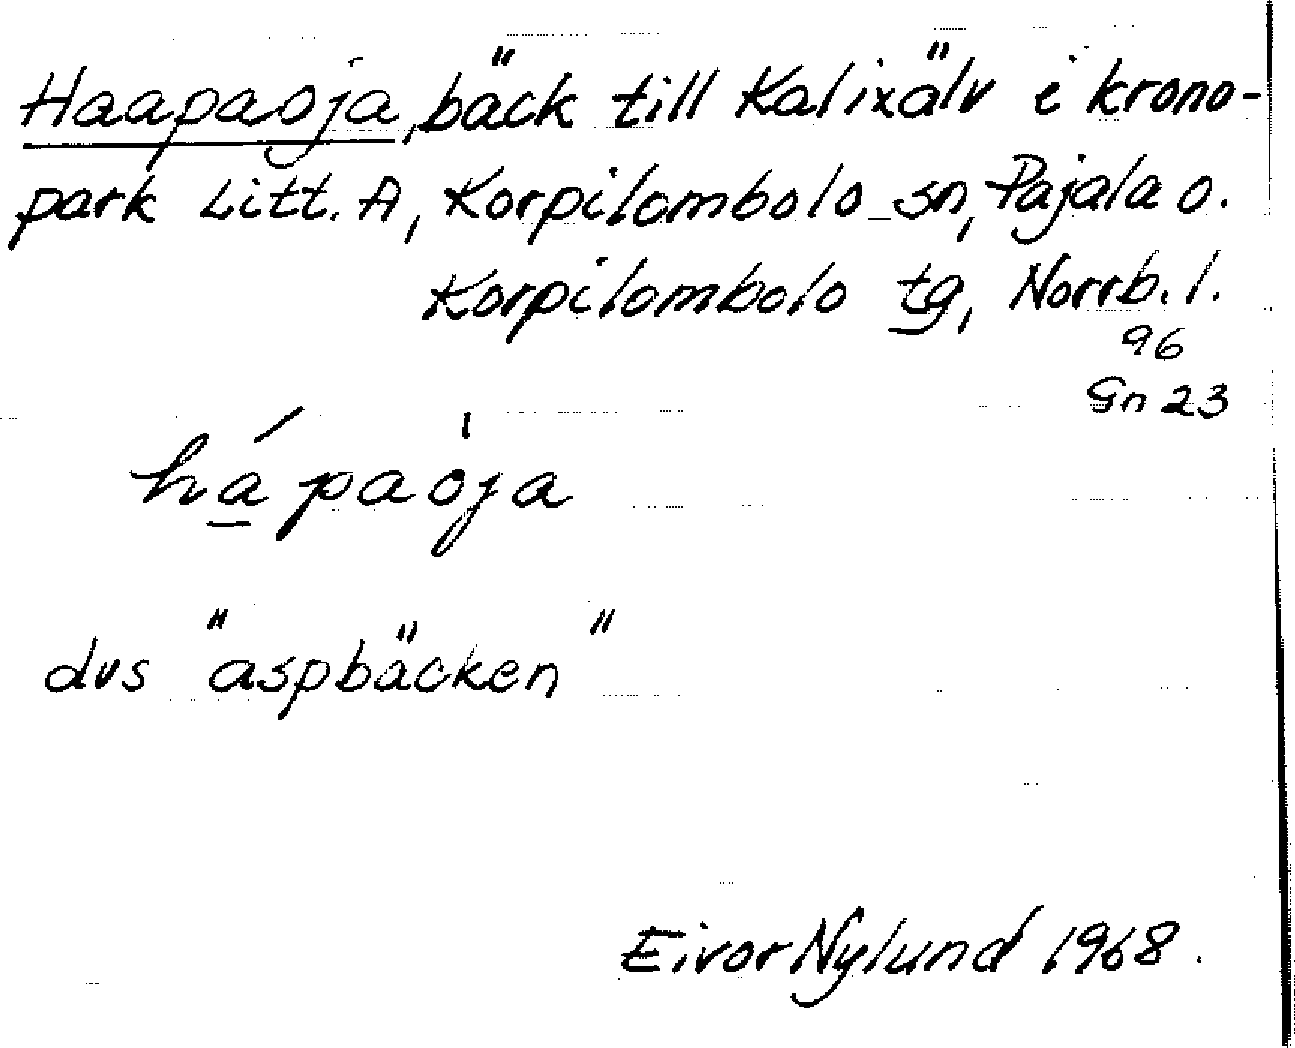 Haapaoja, bäck till Kalixälv i krono-
park Litt. A, Korpilombolo sn, Pajala o.
Korpilombolo tg, Norrb. l.
96
Gn 23
há̱paòja
dvs "aspbäcken"
Eivor Nylund 1968.